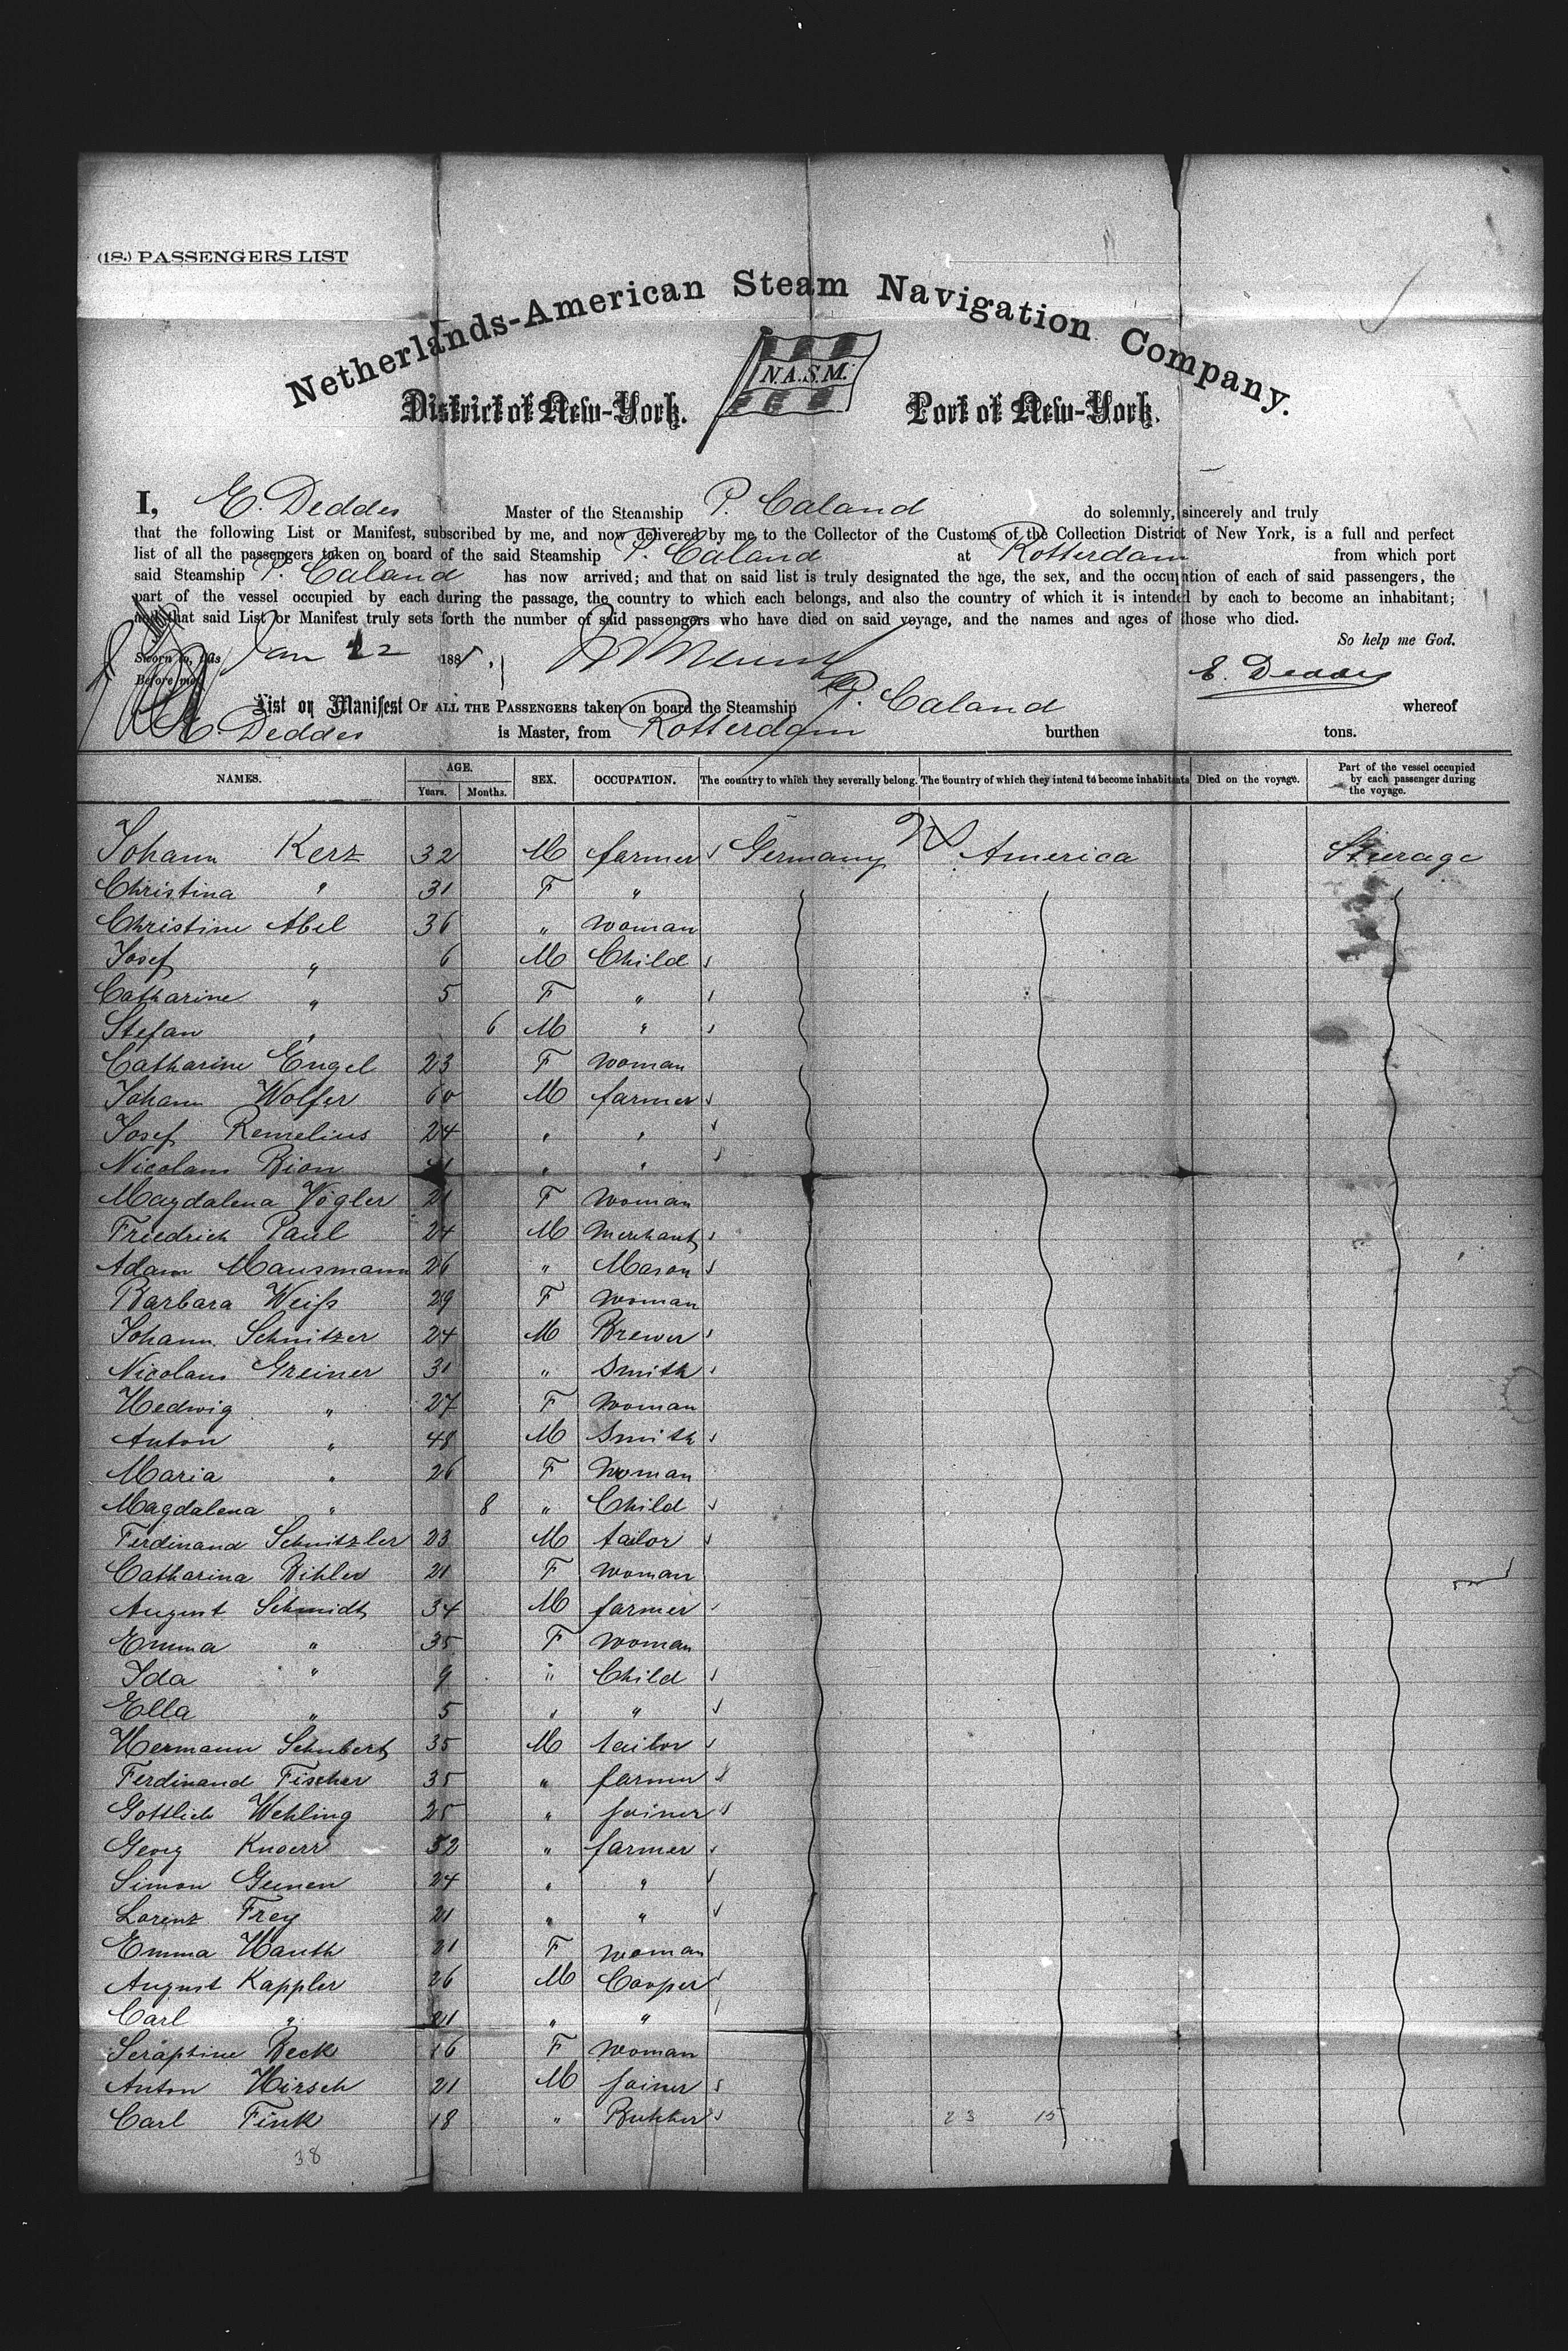 (18.) PASSENGERS LIST
Netherlands-American Steam Navigation Company.
N.A.S.M.
District of New-York. Port of New-York.
I, E. Deddes Master of the Steamship P. Caland do solemnly, sincerely and truly
that the following List or Manifest, subscribed by me, and now delivered by me, to the Collector of the Customs of the Collection District of New York, is a full and perfect
list of all the passengers taken on board of the said Steamship P. Caland at Rotterdam from which port
said Steamship P. Caland has now arrived; and that on said list is truly designated the age, the sex, and the occupation of each of said passengers, the
part of the vessel occupied by each during the passage, the country to which each belongs, and also the country of which it is intended by each to become an inhabitant;
and that said List or Manifest truly sets forth the number of said passengers who have died on said voyage, and the names and ages of those who died.
So help me God.
Sworn to, this Jan 22 188
Before me, E. Deddes
List or Manifest OF ALL THE PASSENGERS taken on board the Steamship P. Caland whereof
E. Deddes is Master, from Rotterdam burthen tons.
NAMES. AGE. Years. Months. SEX. OCCUPATION. The country to which they severally belong. The country of which they intend to become inhabitants Died on the voyage. Part of the vessel occupied by each passenger during the voyage.
Johann Kerz 32 M farmer Germany America Steerage
Christina " 31 F "
Christine Abel 36 " woman
Josef " 6 M Child
Catharine " 5 F "
Stefan " 6 M "
Catharine Engel 23 F woman
Johann Wolfer 60 M farmer
Josef Remelius 24 " "
Nicolaus Bion " "
Magdalena Vogler 21 F woman
Friedrich Paul 24 M Merchant
Adam Mausmann 26 " Mason
Barbara Weiß 29 F woman
Johann Schnitzer 24 M Brewer
Nicolaus Greiner 31 " Smith
Hedwig " 27 F woman
Anton " 48 M Smith
Maria " 26 F woman
Magdalena " 8 " Child
Ferdinand Schnitzler 23 M tailor
Catharina Bihler 21 F woman
August Schmidt 34 M farmer
Emma " 35 F woman
Ida " 9 " Child
Ella " 5 " "
Hermann Schubert 35 M tailor
Ferdinand Fischer 35 " farmer
Gottlieb Wehling 25 " joiner
Georg Knoerr 52 " farmer
Simon Geinen 24 " "
Lorenz Frey 21 " "
Emma Hauth 21 F woman
August Kappler 26 M Cooper
Carl " 21 " "
Seraphine Beck 16 F woman
Anton Hirsch 21 M joiner
Carl Fink 18 " Butcher 23 15
38